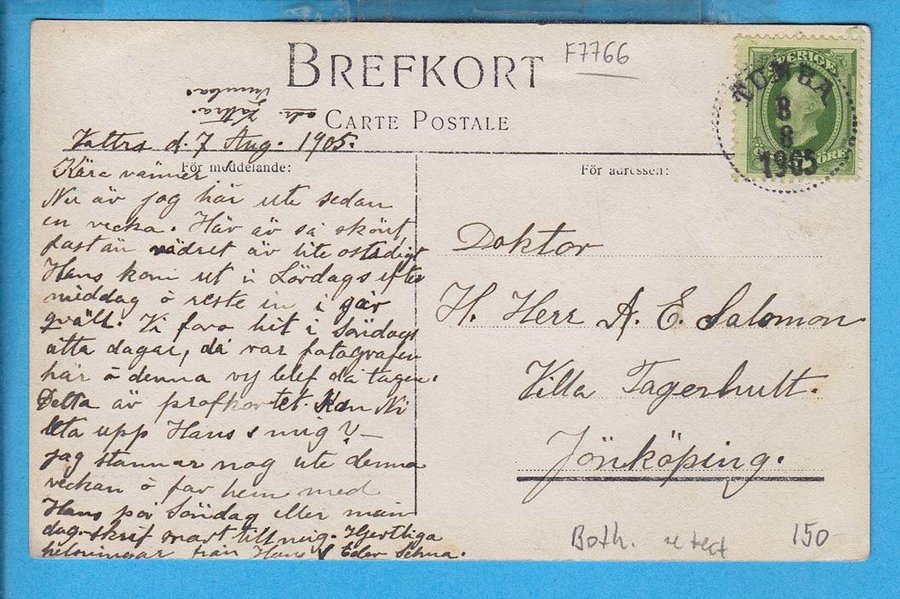 BREFKORT
F7766
CARTE POSTALE
adr. Vattra.
Tumba.
SVERIGE
TUMBA
8
8
1905
Vattra d. 7 Aug. 1905.
För meddelande:
För adressen:
Kära vänner
Nu är jag här ute sedan
en vecka. Här är så skönt
fastän vädret är lite ostadigt
Hans kom ut i Lördags efter
middag o reste in i går
qväll. Vi foro hit i Söndags
åtta dagar, då var fotografen
här o denna vy blef då tagen.
Detta är profkortet. Kan Ni
leta upp Hans o mig? –
Jag stannar nog ute denna
veckan o far hem med
Hans på Söndag eller mån
dag. skrif snart till mig. Hjertliga
helsningar från Hans o Eder Selma.
Doktor
H. Herr A. E. Salomon
Villa Tagerhult.
Jönköping.
Both.
150